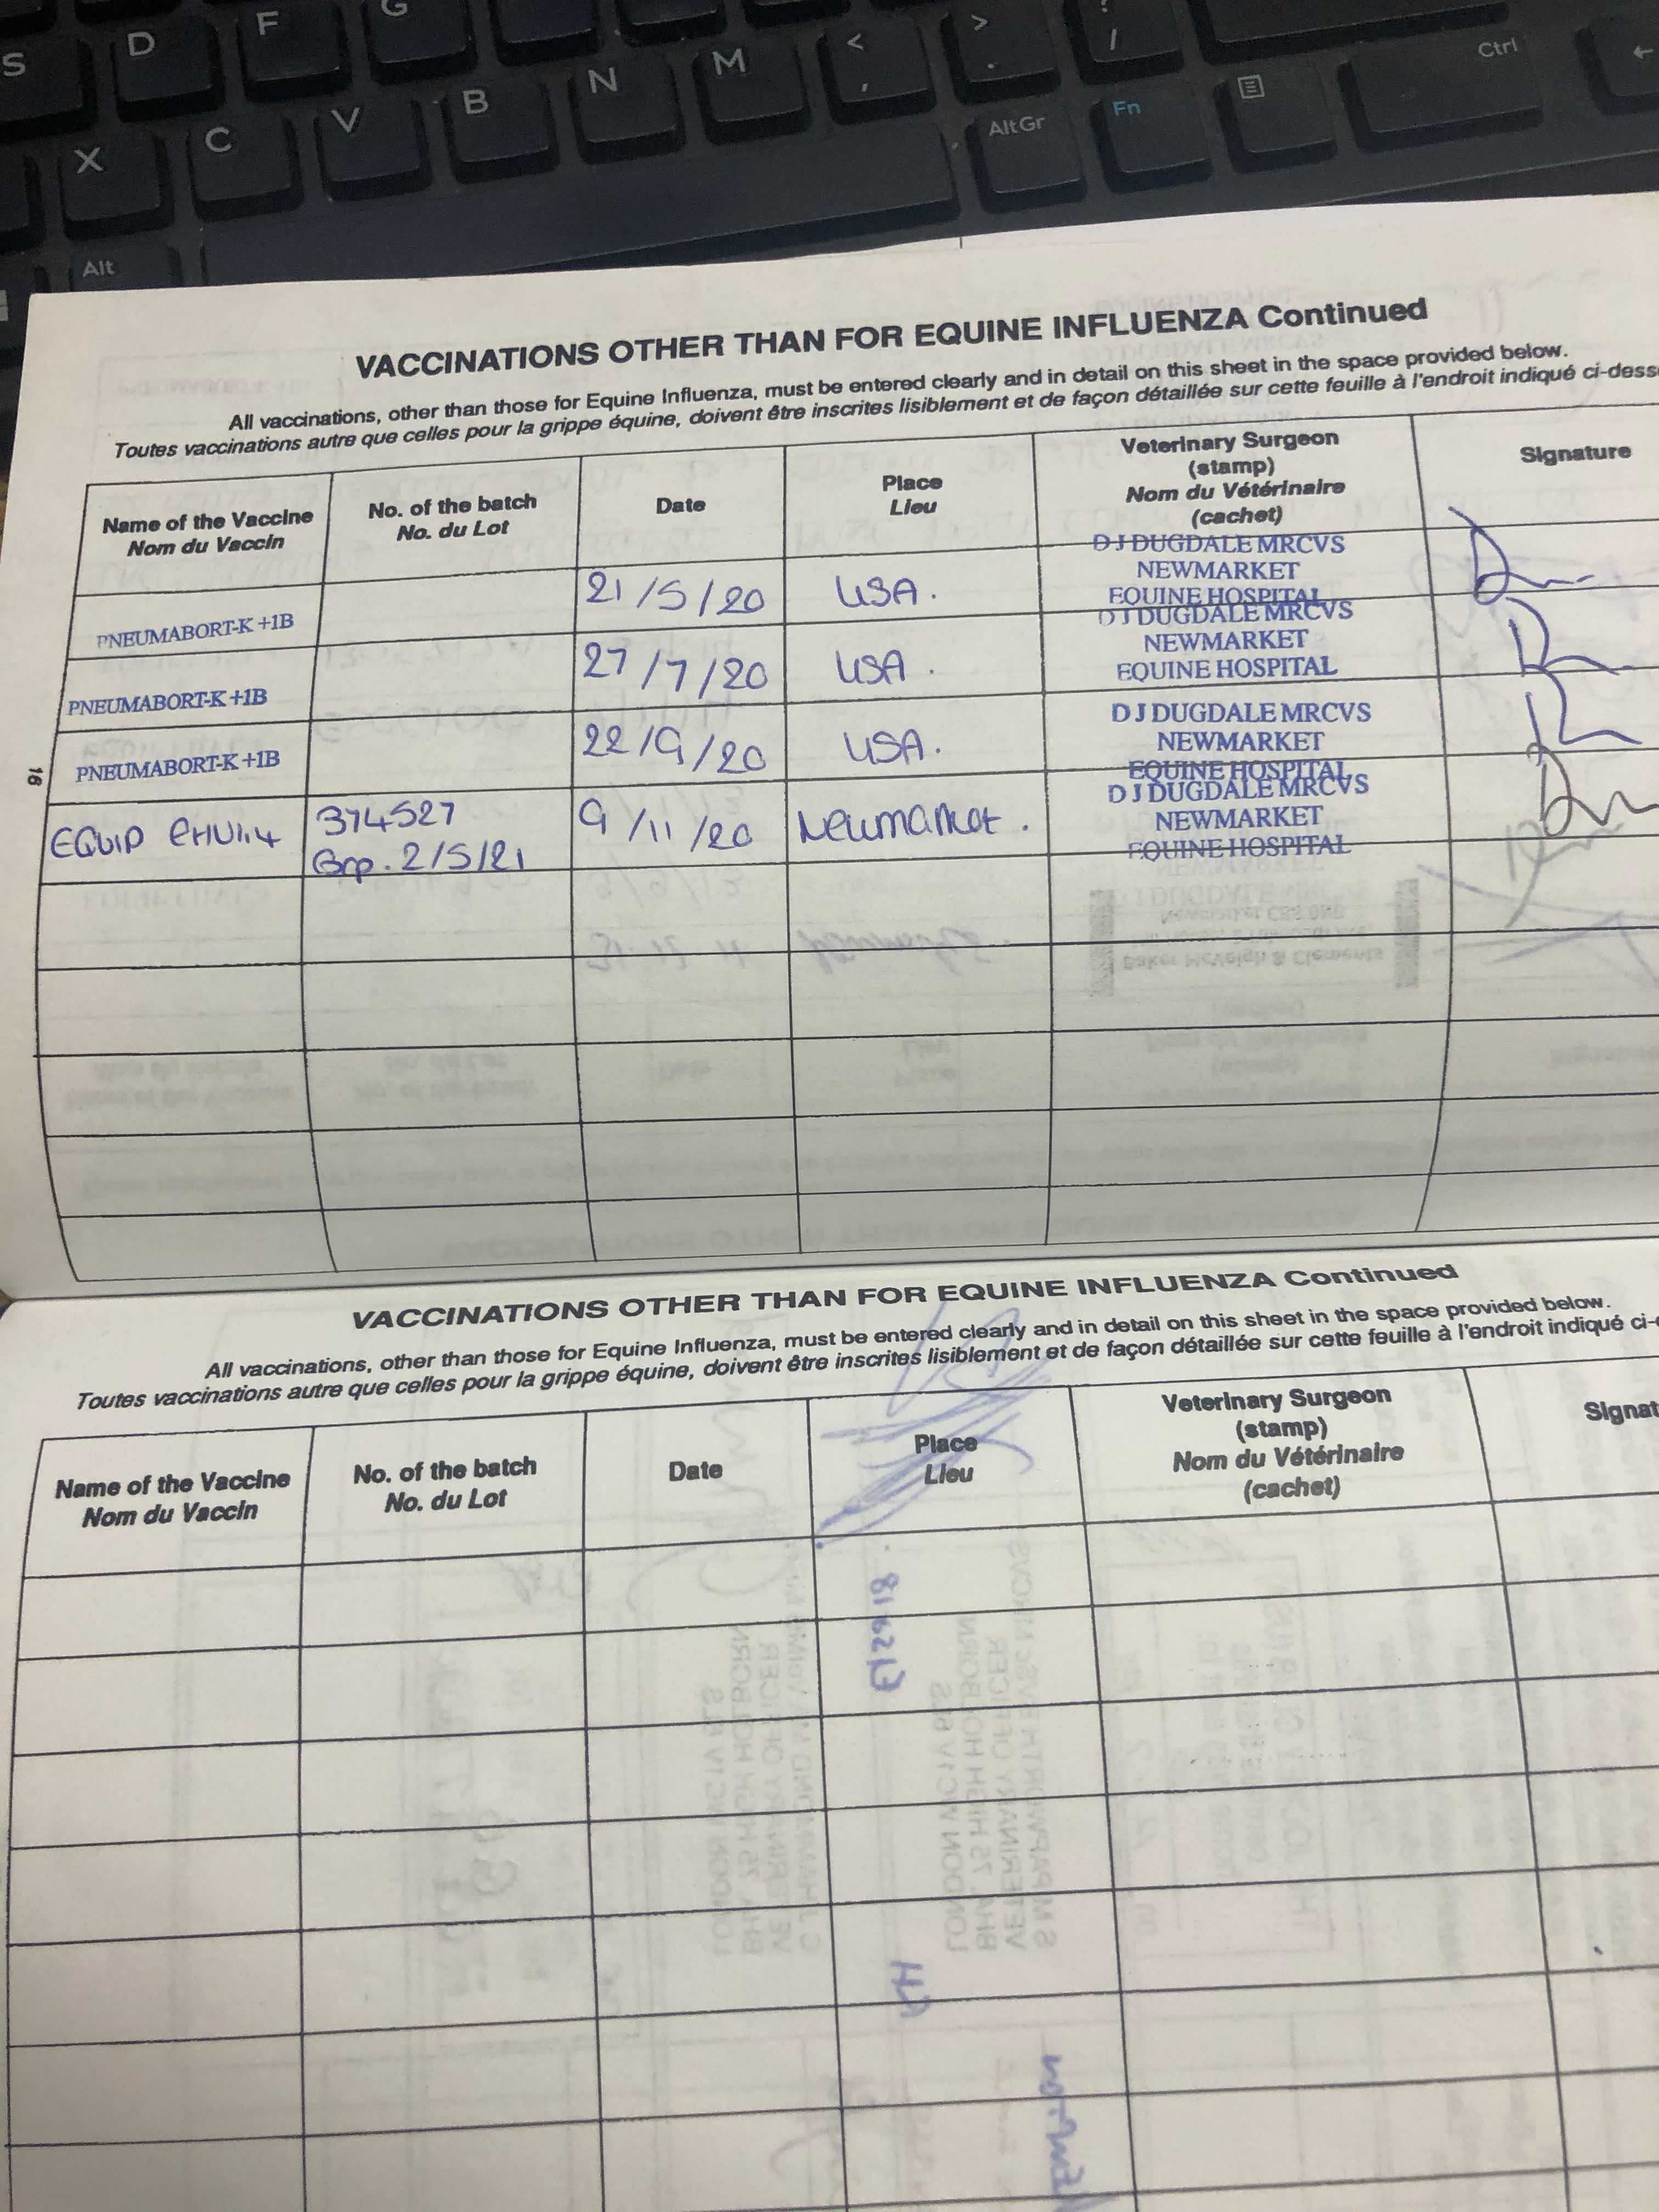 S D F G
X C V B N M < , > . ? /
Alt AltGr Fn Ctrl ←
VACCINATIONS OTHER THAN FOR EQUINE INFLUENZA Continued
All vaccinations, other than those for Equine Influenza, must be entered clearly and in detail on this sheet in the space provided below.
Toutes vaccinations autre que celles pour la grippe équine, doivent être inscrites lisiblement et de façon détaillée sur cette feuille à l'endroit indiqué ci-dess
Name of the Vaccine
Nom du Vaccin
No. of the batch
No. du Lot
Date
Place
Lieu
Veterinary Surgeon
(stamp)
Nom du Vétérinaire
(cachet)
Signature
PNEUMABORT-K +1B
21/5/20
USA.
D J DUGDALE MRCVS
NEWMARKET
EQUINE HOSPITAL
PNEUMABORT-K +1B
27/7/20
USA.
D J DUGDALE MRCVS
NEWMARKET
EQUINE HOSPITAL
PNEUMABORT-K +1B
22/9/20
USA.
D J DUGDALE MRCVS
NEWMARKET
EQUINE HOSPITAL
EQUIP EHV1,4
374527
Exp. 2/5/21
9/11/20
Newmarket.
D J DUGDALE MRCVS
NEWMARKET
EQUINE HOSPITAL
16
VACCINATIONS OTHER THAN FOR EQUINE INFLUENZA Continued
All vaccinations, other than those for Equine Influenza, must be entered clearly and in detail on this sheet in the space provided below.
Toutes vaccinations autre que celles pour la grippe équine, doivent être inscrites lisiblement et de façon détaillée sur cette feuille à l'endroit indiqué ci-
Name of the Vaccine
Nom du Vaccin
No. of the batch
No. du Lot
Date
Place
Lieu
Veterinary Surgeon
(stamp)
Nom du Vétérinaire
(cachet)
Signat